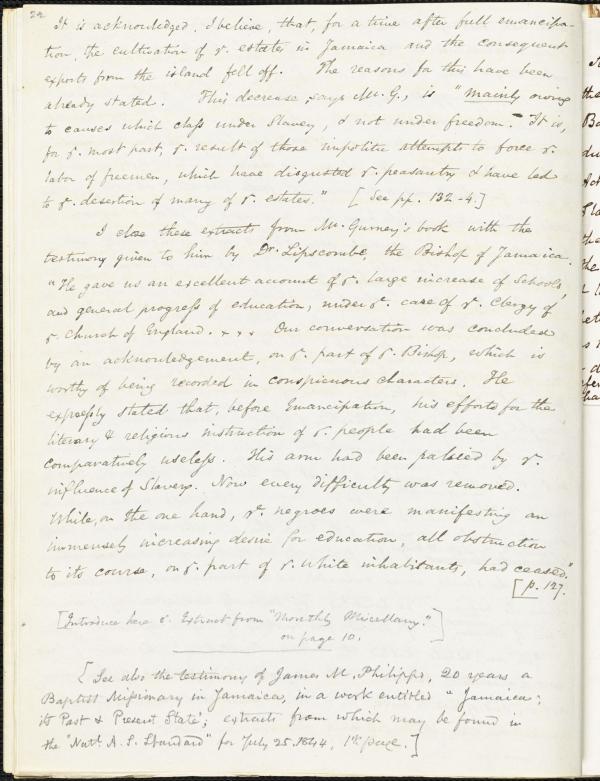 24
It is acknowledged, I believe, that, for a time after full emancipa-
tion, the cultivation of ye. estates in Jamaica and the consequent
exports from the island fell off. The reasons for this have been
already stated. This decrease, says Mr. G., is "mainly owing
to causes which class under Slavery, & not under freedom. It is,
for ye. most part, ye. result of those impolitic attempts to force ye.
labor of freemen, which have disgusted ye. peasantry & have led
to ye. desertion of many of ye. estates." [See pp. 132-4.]
I close these extracts from Mr. Gurney's book with the
testimony given to him by Dr. Lipscombe, the Bishop of Jamaica.
"He gave us an excellent account of ye. large increase of Schools,
and general progress of education, under ye. care of ye. Clergy of
ye. Church of England. x x x Our conversation was concluded
by an acknowledgement, on ye. part of ye. Bishop, which is
worthy of being recorded in conspicuous characters. He
expressly stated that, before Emancipation, his efforts for the
literary & religious instruction of ye. people had been
comparatively useless. His arm had been palsied by ye.
influence of Slavery. Now every difficulty was removed.
While, on the one hand, ye. negroes were manifesting an
immensely increasing desire for education, all obstruction
to its course, on ye. part of ye. white inhabitants, had ceased."
[p. 127.
[Introduce here ye. Extract from "Monthly Miscellany."
on page 10.]
[See also the testimony of James M. Philippo, 20 years a
Baptist Missionary in Jamaica, in a work entitled "Jamaica;
its Past & Present State'; extracts from which may be found in
the "Natl. A. S. Standard" for July 25. 1844, 1st page.]